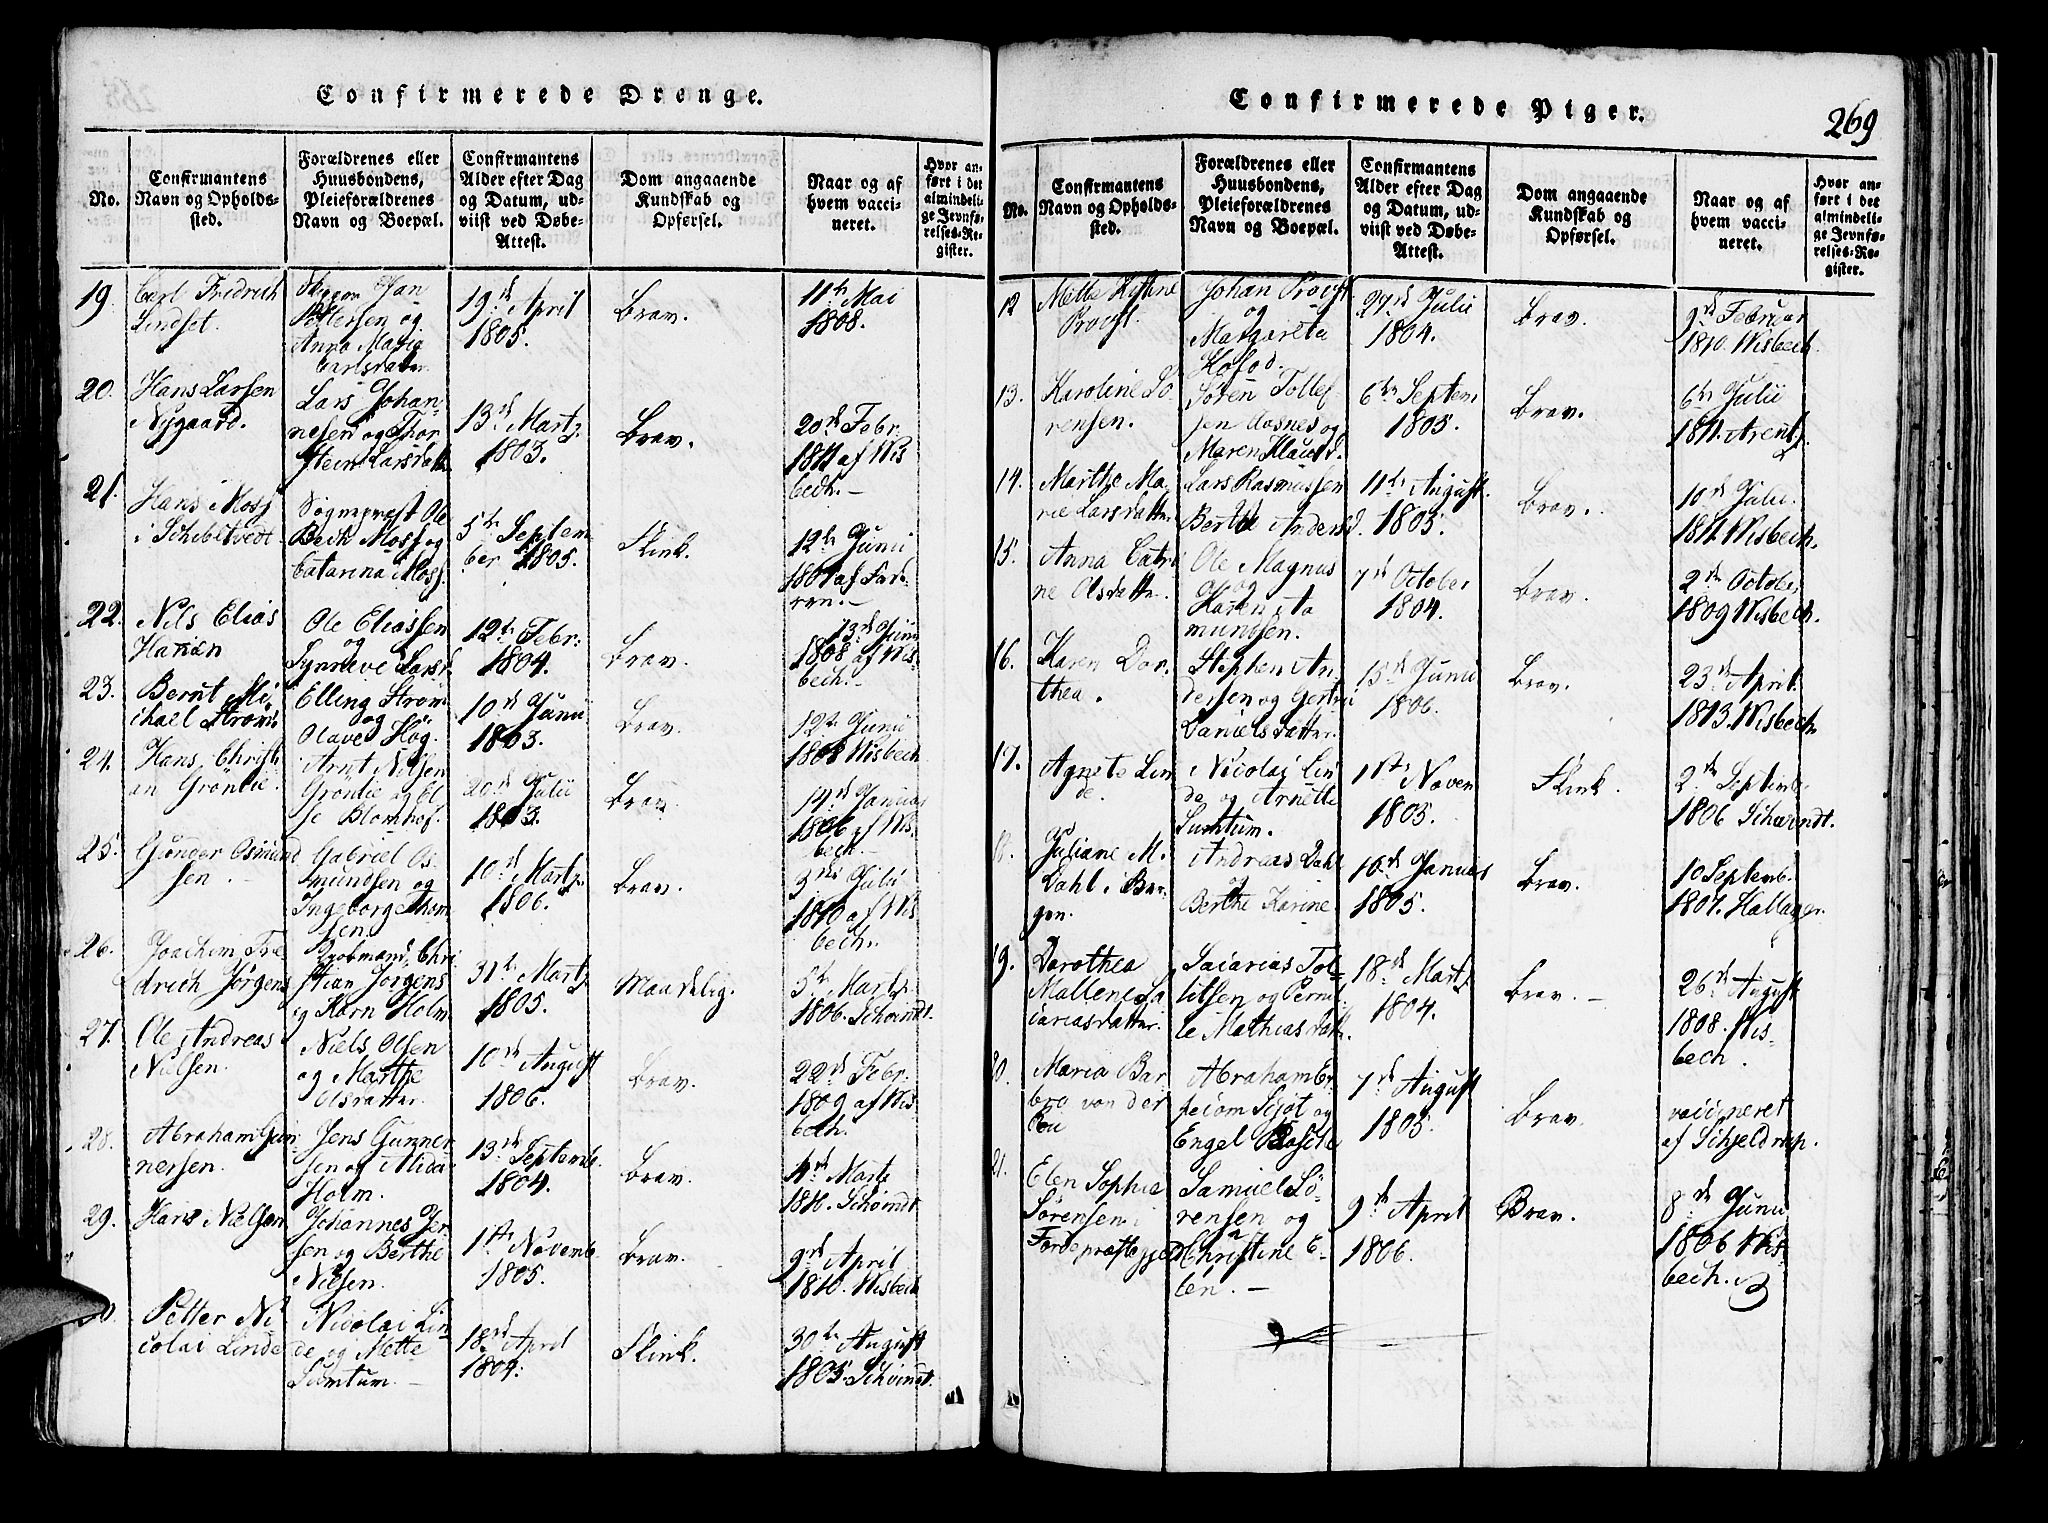 Confirmerede Drenge.
No.
Confirmantens Navn og Opholds-sted.
Forældrenes eller Huusbondens, Pleieforældrenes Navn og Boepæl.
Confirmantens Alder efter Dag og Datum, ud-viist ved Døbe-Attest.
Dom angaaende Kundskab og Opførsel.
Naar og af hvem vacci-neret.
Hvor an-ført i det almindeli-ge Jevnfø-relses-Re-gister.
19.
Carl Fridrich
Lindset.
Skipper Jan
Pettersen og
Anna Maria
Carlsdatter
19de April
1805.
Brav.
11te Mai
1808.
20.
Hans Larsen
Nygaard.
Lars Johan-
nesen og Thor
stein Larsdatt
13de Martz
1803.
Brav.
20de Febr.
1811 af Wis
bech.-
21.
Hans Mossj
i Schibstvedt
Sogneprest Ole
Bech Mossj og
Catarina Mossj.
5te Septem
ber 1805.
Flink.
12te Junii
1807 af
22.
Nils Elias
Hansen
Ole Eliassen
og
Synneve Larsd.
12te Febr.
1804.
Brav.
13de Junii
1808 af Wis
bech.-
23.
Bernt Mi-
chael Strøm.
Elling Strøm
og
Olave Høg.
10de Junii
1803.
Brav.
12te Junii
1808 Wisbech
24.
Hans Christi
an Grøntie.
Arnt Nilsen
Grøntie og El
se Blomhof.
20de Julii
1803.
Brav.
14de Januar
1806 af Wis
bech.-
25.
Gunder Osmund
sen.-
Gabriel Os-
mundsen og
Ingeborg Thom
sen.
10de Martz
1806.
Brav.
3die Julii
1810 af Wis
bech.
26.
Joachim Frie
drich Jørgens
Kjøbmand Chri
stian Jørgens
og Karn Holm
31te Martz
1805.
Maadelig.
5te Martz
1806. Schoindt.
27.
Ole Andreas
Nielsen.
Niels Olsen
og Marthe
Olsdatter.
10de August
1806.
Brav.
22de Febr.
1809 af Wis
bech.
28.
Abraham Gun
nersen.
Jens Gunner
sen og Mida
Holm.
13de Septemb.
1804.
Brav.
4de Marts
1810. Schoindt
29.
Hans Nielsen
Johannes Jer
sen og Berthe
Nielsen.
1ste Novemb.
1805.
Brav.
9de April
1810. Wisbech
30.
Petter Ni
colai Linde
Nicolai Lin
de og Mette
Sumtum.-
18de April
1804.
Flink.
30te August
1805. Schoindt.
Confirmerede Piger.
269
No.
Confirmantens Navn og Opholds-sted.
Forældrenes eller Huusbondens, Pleieforældrenes Navn og Boepæl.
Confirmantens Alder efter Dag og Datum, ud-viist ved Døbe-Attest.
Dom angaaende Kundskab og Opførsel.
Naar og af hvem vacci-neret.
Hvor an-ført i det almindeli-ge Jevnfø-relses-Re-gister.
12
Mette Kistine
Provst.
Johan Provst
og
Margareta
Hofod.
27de Julii
1804.
Brav.
9de Februar
1810. Wisbech.
13.
Karoline Sö
rensen.
Sören Tollef
sen Aasnes og
Maren Klausd.
6te Septem
1805.
Brav.
6te Julii
1811. Arentz.
14.
Marthe Ma-
rie Larsdatter.
Lars Rasmussen
Berthe Andersd.
11te August.
1805.
Brav.
10de Julii.
1811. Wisbech.
15.
Anna Catri
ne Olsdatter.
Ole Magnus
og
Karen Aa
mundsen.
7de October
1804.
Brav.
2de October
1809 Wisbech.
16.
Karen Dor-
thea.
Stephen An
dersen og Gertru
Danielsdatter.
15de Junii
1806.
Brav.
23de April.
1813. Wisbech.
17.
Agnete Lin
de.
Nicolai Lin
de og Arnette
Sumtum.
11te Noven
1805.
Flink.
2de Septemb
1806 Schoindt.
18.
Juliane M.
Dahl i Ber-
gen.
Andreas Dahl
og
Berthe Karine
16de Januar
1805.
Brav.
10 Septemb.
1807. Hallager.
19.
Dorothea
Mallene Sa
cariasdatter.
Sacarias Tol-
litsen og Pernil
le Mathiasdatt.
18de Martz
1804.
Brav.-
26de August
1808. Wis-
bech.
20.
Maria Bar
bro von der
Abraham
og
Engel
7de August
1805.
Brav.
vaccineret
af Schjeldrup.
21.
Elen Sophia
Sørensen i
Førde præstegjed
Samuel Sö-
rensen og
Christine E-
len.-
9de April
1806.
Brav.
8de Junii
1806 Wis-
bech.